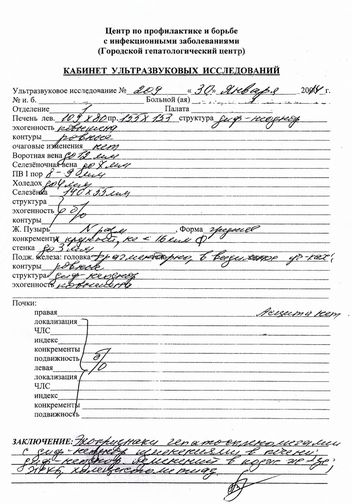 Центр по профилактике и борьбе
с инфекционными заболеваниями
(Городской гепатологический центр)
КАБИНЕТ УЛЬТРАЗВУКОВЫХ ИССЛЕДОВАНИЙ
Ультразвуковое исследование № 209 « 30 » января г.
№ и. б. Больной (ая)
Отделение 1 Палата
Печень лев. 109 х 80 пр. 155 х 153 структура диф-неоднор
эхогенность повышена
контуры ровные
очаговые изменения нет
Воротная вена до 12 мм
Селезёночная вена до 8 мм
ПВ 1 пор 8 - 9 мм
Холедох до 4 мм
Селезёнка 140 х 55 мм
структура
эхогенность б/о
контуры
Ж. Пузырь N разм , Форма
конкременты крупность, кс < 16 мм
стенка до 3 мм
Подж. железа: головка фрагментарно, в
контуры ровные
структура диф-неоднор
эхогенность повышена
Почки:
правая Асцита нет.
локализация
ЧЛС
индекс
конкременты
подвижность б/о
левая
локализация
ЧЛС
индекс
конкременты
подвижность
ЗАКЛЮЧЕНИЕ: Эхопризнаки гепатоспленомегалии
с диф-неоднор изменениями в печени,
диф-неоднор изменений в подж. же-зе.
ЖКБ, холецистолитиаз.